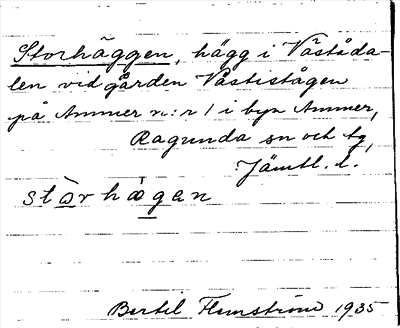 Storhäggen, hägg i Våståda-
len vid gården Våstistågen
på Ammer n:r 1 i byn Ammer,
Ragunda sn och tg,
Jämtl. l.
stårhägen
Bertil Flemström 1935